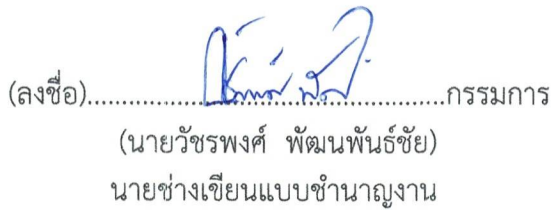 (ลงชื่อ)................................................กรรมการ
(นายวัชรพงศ์ พัฒนพันธ์ชัย)
นายช่างเขียนแบบชำนาญงาน